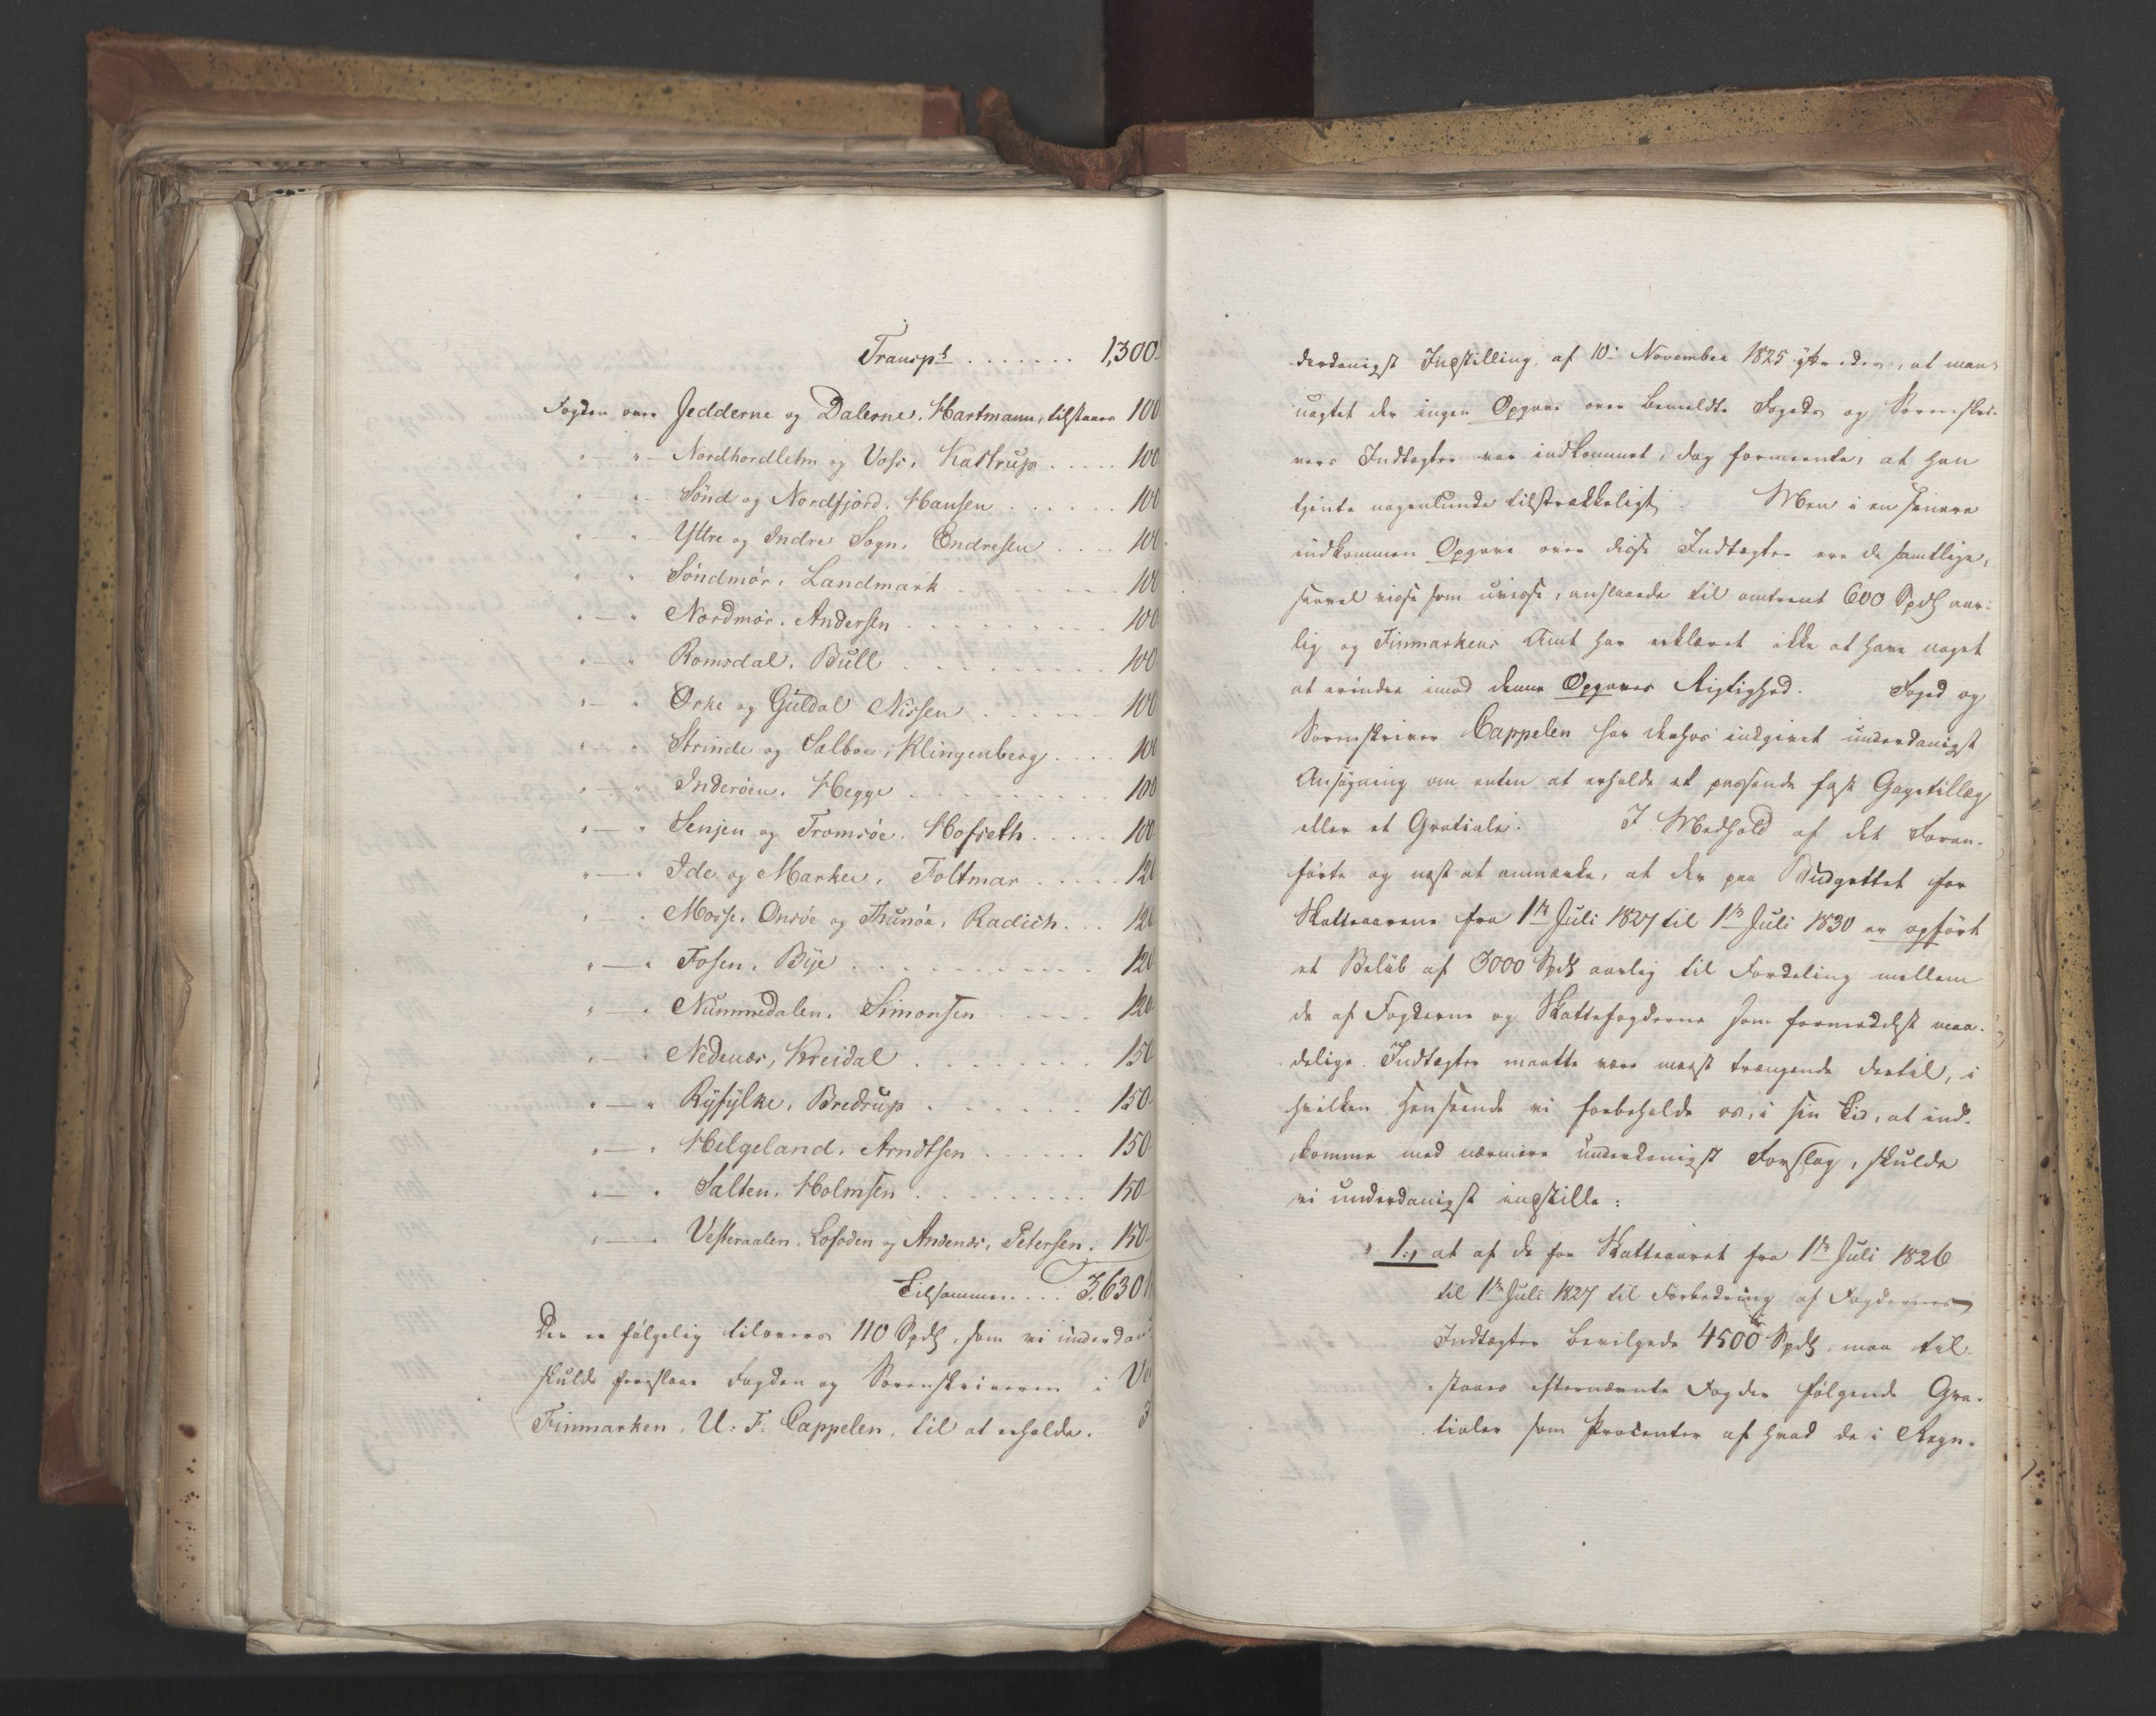 Transpt. . . . . . . . 1,300
Fogden over Jedderne og Dalerne, Hartmann, tilstaaes 100
" — " — Nordhordlehn og Voss, Kastrup . . . . . 100
" — " — Sönd og Nordfjord, Hansen . . . . . . 100
" — " Yttre og Indre Sogn, Endresen . . . . 100
" " Söndmör, Landmark . . . . . . 100
" — " Nordmör, Andersen . . . . . . . . . 100
" — " Romsdal, Bull . . . . . . . . . 100
" — " Orke og Guldal Nissen . . . . . . 100
" " Strinde og Selboe, Klingenberg . . . . 100
" — " Inderöen, Hegge . . . . . . . . . 100
" — " Senjen og Tromsöe, Hofseth . . . . . 100
" — " Ide og Marker, Foltmar . . . . . 120
" — " Mosse, Onsöe og Thunöe, Radich . . . 120
" — " Fosen, Bye . . . . . . . . . . 120
" — " Nummedalen, Simonsen . . . . . 120
" — " Nedenæs, Kreidal . . . . . . . . 150
" — " Ryfylke, Bredrup . . . . . . . 150
" — " Helgeland, Arndtsen . . . . . . 150
" — " Salten, Holmsen . . . . . . . . . 150
" — " Vesteraalen, Lofoden og Andenæs, Petersen . 150
Tilsammen . . . 3,630
Der er fölgelig tilovers 110 Spd, som vi underdan
skulde foreslaae Fogden og Sorenskriveren i
Finmarken, U. F. Cappelen, til at erholde.
derdanigst Indstilling af 10de November 1825 yttredes, at man,
uagtet der ingen Opgave over bemeldte Fogeds og Sorenskri-
vers Indtægter var indkommet, dog formeente, at han
tjente nogenlunde tilstrækkeligt. Men i en senere
indkommen Opgave over disse Indtægter ere de samtlige,
saavel visse som uvisse, anslaaede til omtrent 600 Spd aar-
lig og Finmarkens Amt har erklæret ikke at have noget
at erindre imod denne Opgaves Rigtighed. Foged og
Sorenskriver Cappelen har derhos indgivet underdanigst
Ansögning om enten at erholde et passende fast Gagetillæg
eller et Gratiale. I Medhold af det Foran-
förte og næst at anmærke, at der paa Budgettet for
Skatteaarene fra 1ste Juli 1827 til 1ste Juli 1830 er opfört
et Belöb af 3000 Spd aarlig til Fordeling mellem
de af Fogderne og Skattefogderne som formedelst maa-
delige Indtægter maatte være meest trængende dertil, i
hvilken Henseende vi forbeholde os, i sin Tid, at ind-
komme med nærmere underdanigst Forslag, skulde
vi underdanigst indstille:
" 1., at af de for Skatteaaret fra 1ste Juli 1826
til 1ste Juli 1827 til Forbedring af Fogdernes
Indtægter bevilgede 4500 Spd, maa til-
staaes efternævnte Fogder fölgende Gra-
tialer som Procenter af hvad de i Regn-